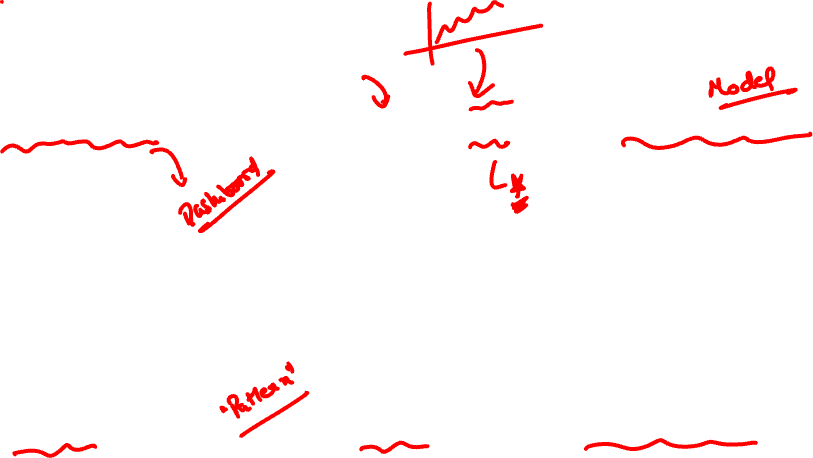 Model
Dashboard
"Pattern"